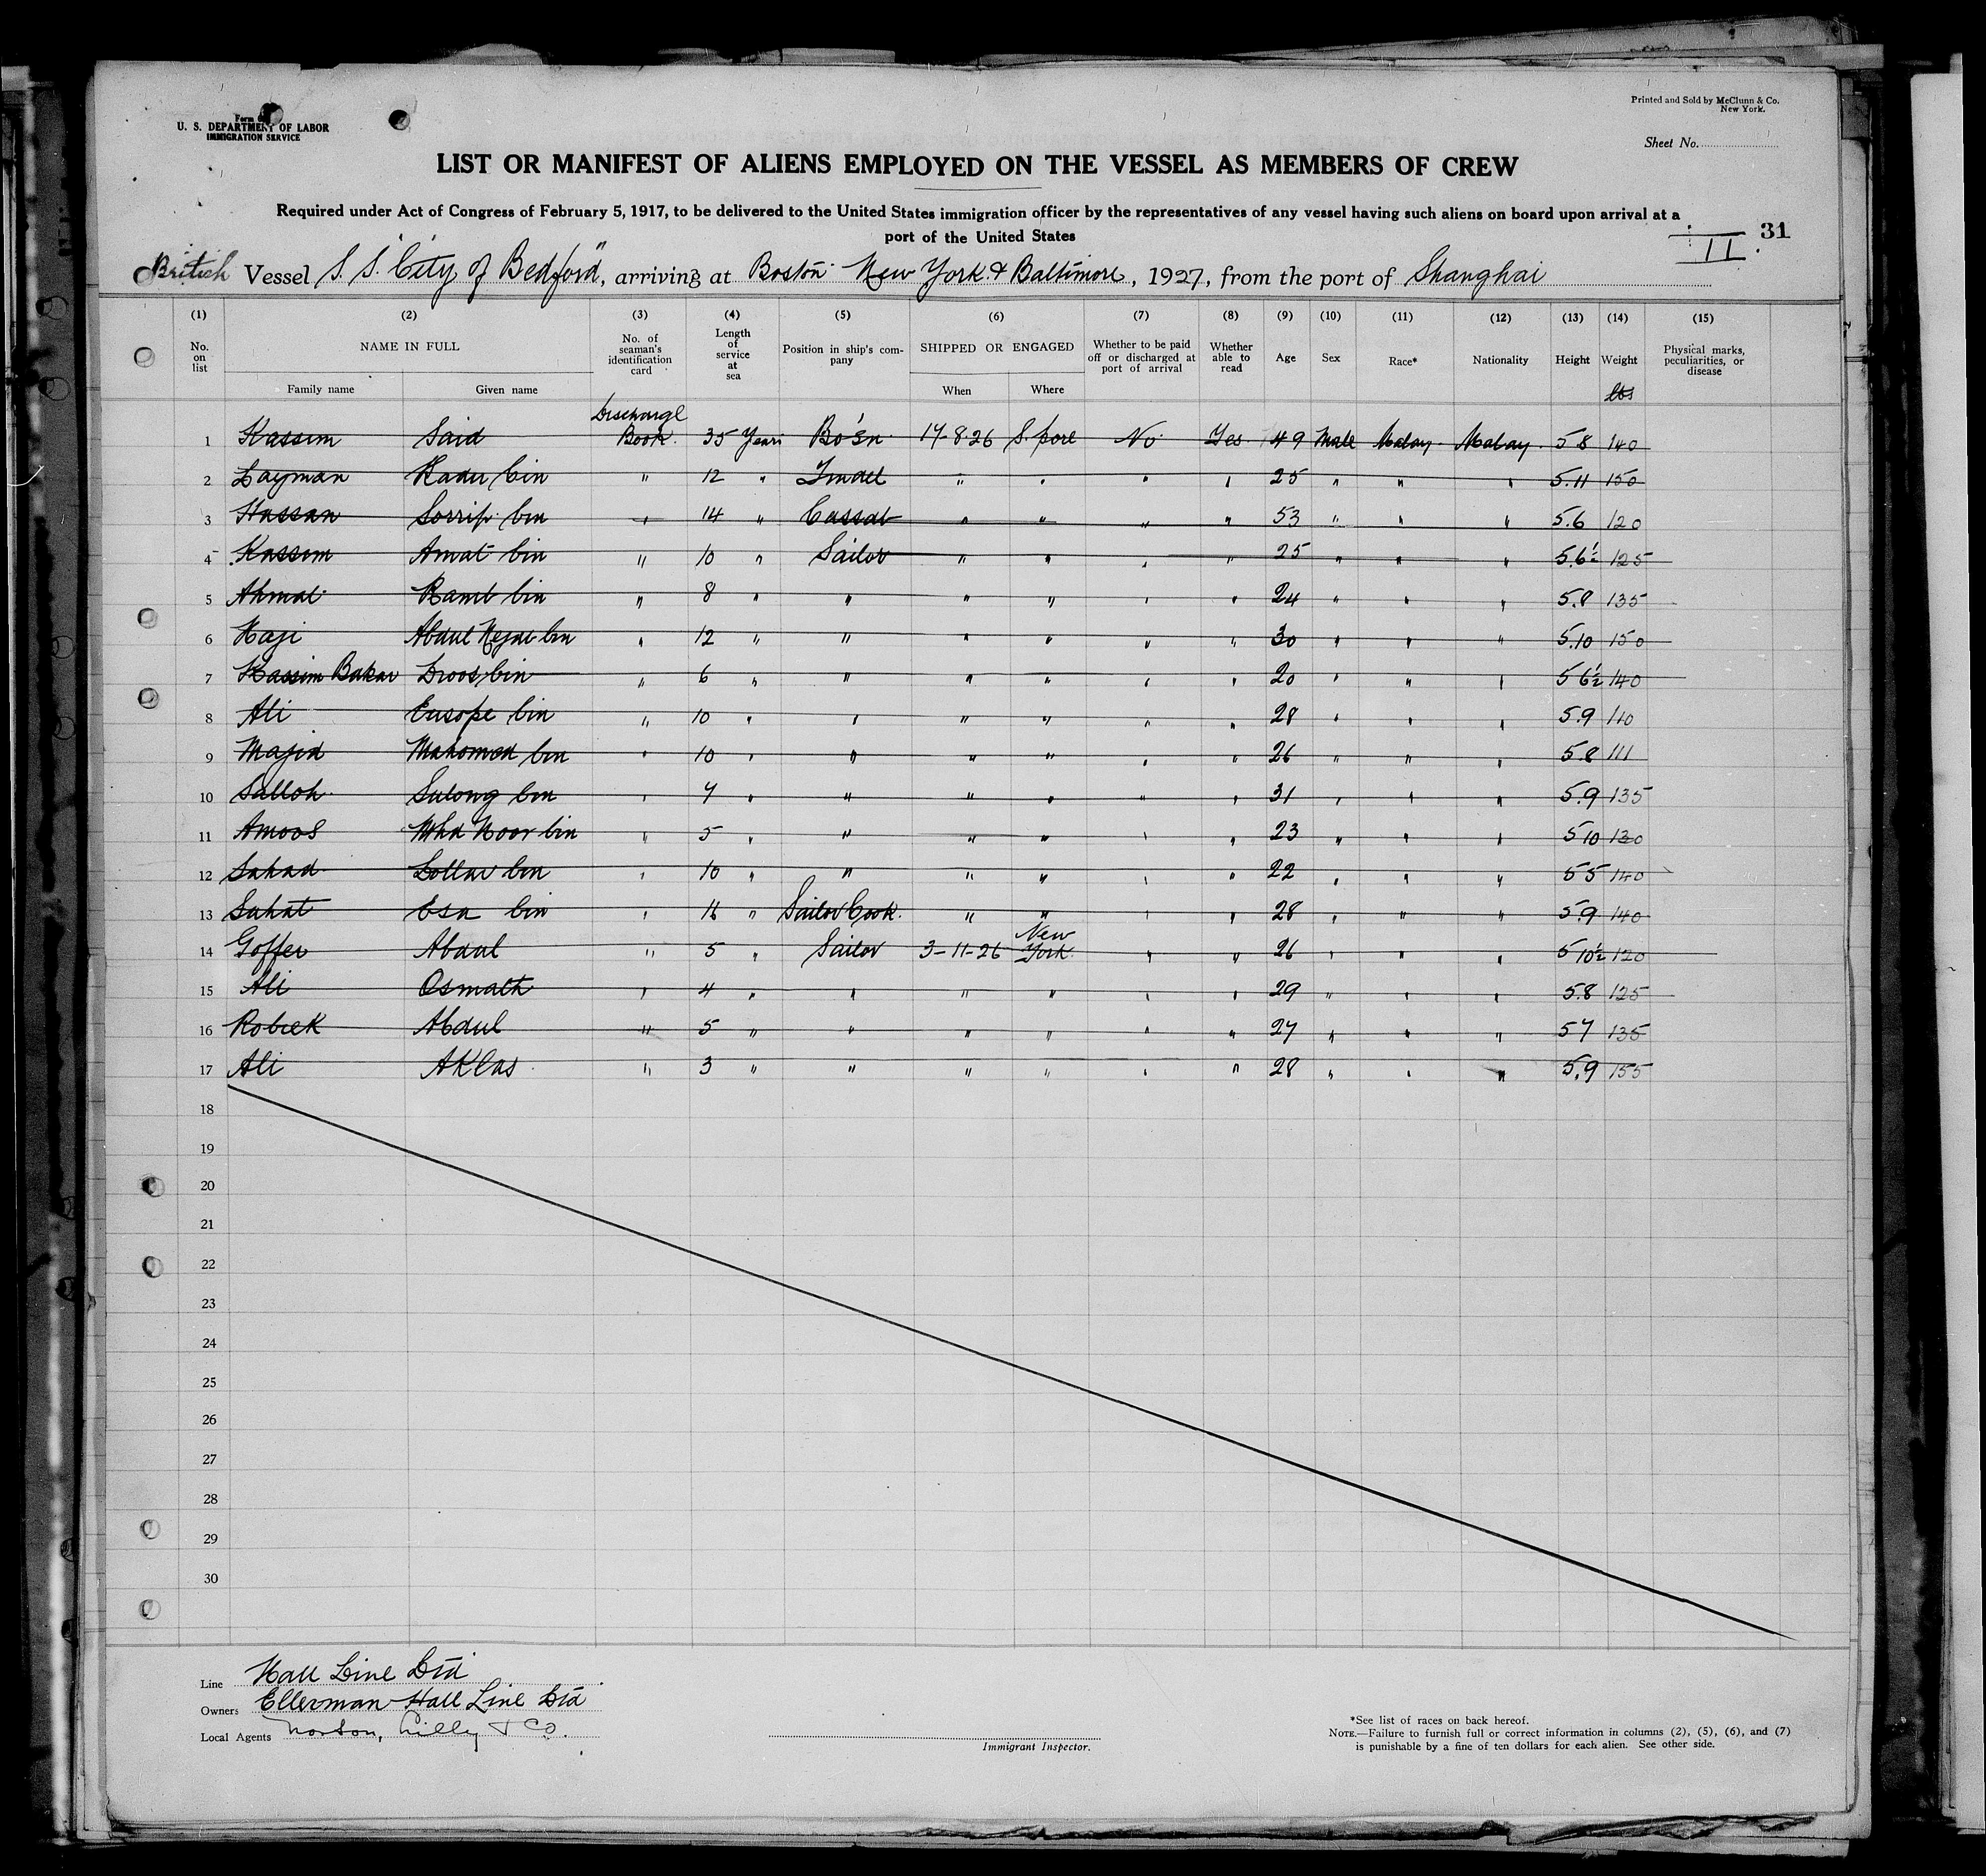 Printed and Sold by McClunn & Co.
New York.
Form
U. S. DEPARTMENT OF LABOR
IMMIGRATION SERVICE
Sheet No.
LIST OR MANIFEST OF ALIENS EMPLOYED ON THE VESSEL AS MEMBERS OF CREW
Required under Act of Congress of February 5, 1917, to be delivered to the United States immigration officer by the representatives of any vessel having such aliens on board upon arrival at a
port of the United States
II. 31
British Vessel S. S. "City of Bedford", arriving at Boston New York & Baltimore, 1927, from the port of Shanghai
(1) (2) (3) (4) (5) (6) (7) (8) (9) (10) (11) (12) (13) (14) (15)
No. on list NAME IN FULL No. of seaman's identification card Length of service at sea Position in ship's company SHIPPED OR ENGAGED Whether to be paid off or discharged at port of arrival Whether able to read Age Sex Race* Nationality Height Weight Physical marks, peculiarities, or disease
Family name Given name When Where lbs
1 Kassim Said Discharge Book. 35 Years Bo's'n 17-8-26 S'pore No Yes 49 Male Malay Malay 5 8 140
2 Layman Kadu bin " 12 " " " " " 25 " " " 5.11 150
3 Hassan Sorrip bin " 14 " Cassab " " " " 53 " " " 5.6 120
4 Kassom Amat bin " 10 " Sailor " " " " 25 " " " 5.6½ 125
5 Ahmat bin " 8 " " " " " " 24 " " " 5.8 135
6 Haji Abdul bin " 12 " " " " " " 30 " " " 5.10 150
7 Kassim Bakar Droos bin " 6 " " " " " " 20 " " " 5 6½ 140
8 Ali Eusope bin " 10 " " " " " " 28 " " " 5.9
9 Majid Mahomed bin " 10 " " " " " " 26 " " " 5.8 111
10 Salloh Sulong bin " 7 " " " " " " 31 " " " 5.9 135
11 Amoos Mhd Noor bin " 5 " " " " " " 23 " " " 5 10 130
12 Sahad bin " 10 " " " " " " 22 " " " 5 5 140
13 Sahat Esa bin " " Sailor Cook. " " " " 28 " " " 5.9 140
14 Goffer Abdul " 5 " Sailor 3-11-26 New York " " 26 " " " 5 10½ 120
15 Ali Osmath " 4 " " " " " " 29 " " " 5.8 125
16 Robiek Abdul " 5 " " " " " " 27 " " " 5 7 135
17 Ali Aklas " 3 " " " " " " 28 " " " 5.9 155
18
19
20
21
22
23
24
25
26
27
28
29
30
Line Hall Line Ltd
Owners Ellerman Hall Line Ltd
Local Agents Norton, Lilly & Co.
Immigrant Inspector.
*See list of races on back hereof.
NOTE.—Failure to furnish full or correct information in columns (2), (5), (6), and (7)
is punishable by a fine of ten dollars for each alien. See other side.